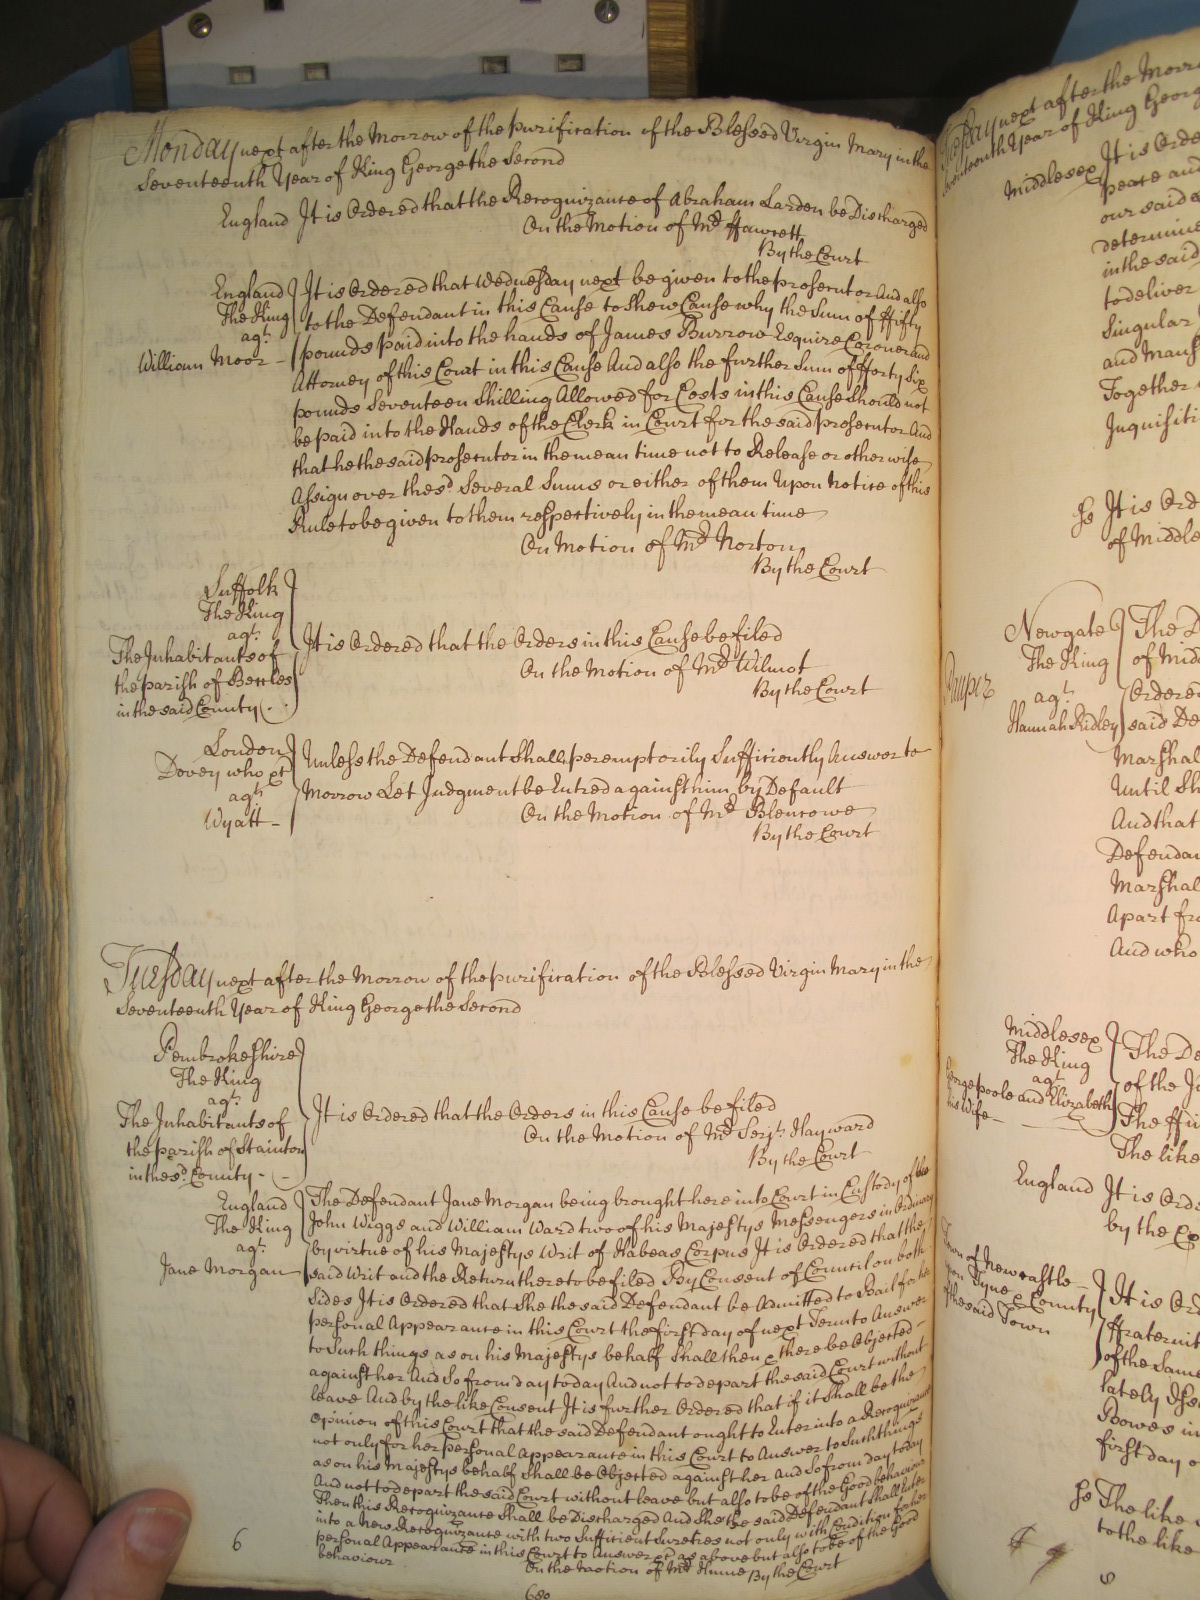 Monday next after the Morrow of the purification of the Blessed Virgin Mary in the
Seventeenth Year of King George the Second
England It is Ordered that the Recognizance of Abraham Larden be Discharged
On the Motion of Mr. ffawcett
By the Court
England
The King
agt.
William Moor -
It is Ordered that Wednesday next be given to the prosecutor And also
to the Defendant in this Cause to shew Cause why the Sum of ffifty
pounds paid into the hands of James Burrow Esquire Coroner and
Attorney of this Court in this Cause And also the further Sum of fforty Six
pounds Seventeen Shilling Allowed for Costs in this Cause should not
be paid into the Hands of the Clerk in Court for the said prosecutor And
that he the said prosecutor in the mean time not to Release or otherwise
Assign over the sd. Several Sums or either of them Upon Notice of this
Rule to be given to them respectively in the mean time
On Motion of Mr. Norton
By the Court
Suffolk
The King
agt.
The Inhabitants of
the parish of Beccles
in the said County
It is Ordered that the Orders in this Cause be filed
On the Motion of Mr. Wilmot
By the Court
London
Dovey who &ct
agt.
Wyatt -
Unless the Defendant Shall peremptorily Sufficiently Answer to
Morrow Let Judgment be Entred against him by Default
On the Motion of Mr. Blencowe
By the Court
Tuesday next after the Morrow of the purification of the Blessed Virgin Mary in the
Seventeenth Year of King George the Second
Pembrokeshire
The King
agt.
The Inhabitants of
the parish of Stainton
in the sd. County -
It is Ordered that the Orders in this Cause be filed
On the Motion of Mr. Serjt. Hayward
By the Court
England
The King
agt.
Jane Morgan
The Defendant Jane Morgan being brought here into Court in Custody of
John Wiggs and William Ward two of his Majestys Messengers in Ordinary
by virtue of his Majestys Writ of Habeas Corpus It is Ordered that the
said Writ and the Return thereto be filed By Consent of Council on both
Sides It is Ordered that She the said Defendant be Admitted to Bail for her
personal Appearance in this Court the first day of next Term to Answer
to Such things as on his Majestys behalf Shall then & there be Objected
against her And So from day to day And not to depart the said Court without
leave And by the like Consent It is further Ordered that if it Shall be the
Opinion of this Court that the said Defendant ought to Enter into a Recognizance
not only for her personal Appearance in this Court to Answer to Such things
as on his Majestys behalf Shall be Objected against her And So from day to day
And not to depart the said Court without leave but also to be of the Good behaviour
Then this Recognizance Shall be Discharged And She the said Defendant shall Enter
into a New Recognizance with two Sufficient Sureties not only with Condition for her
personal Appearance in this Court to Answer &ct as above but also to be of the Good
behaviour
On the motion of Mr. Hume By the Court
6
680
Tuesday next after the Morro
Seventeenth Year of King Georg
Middlesex It is Orde
peace and
our said
determine
in the said
to deliver
Singular
and Manf
Together
Inquisiti
It is Ord
of Middle
Pauper
Newgate
The King
agt.
Hannah Ridley
The D
of Mid
Ordered
said De
Marshal
Until Sh
And that
Defendan
Marshal
Apart fro
And who
Middlesex
The King
agt.
George poole and Elizabeth
his Wife
The De
of the J
The ffu
The like
England It is Orde
by the Co
Town of Newcastle
upon Tyne & County
of the said Town
It is Ord
ffraternit
of the Same
lately
Bowes in
first day o
The like
to the like